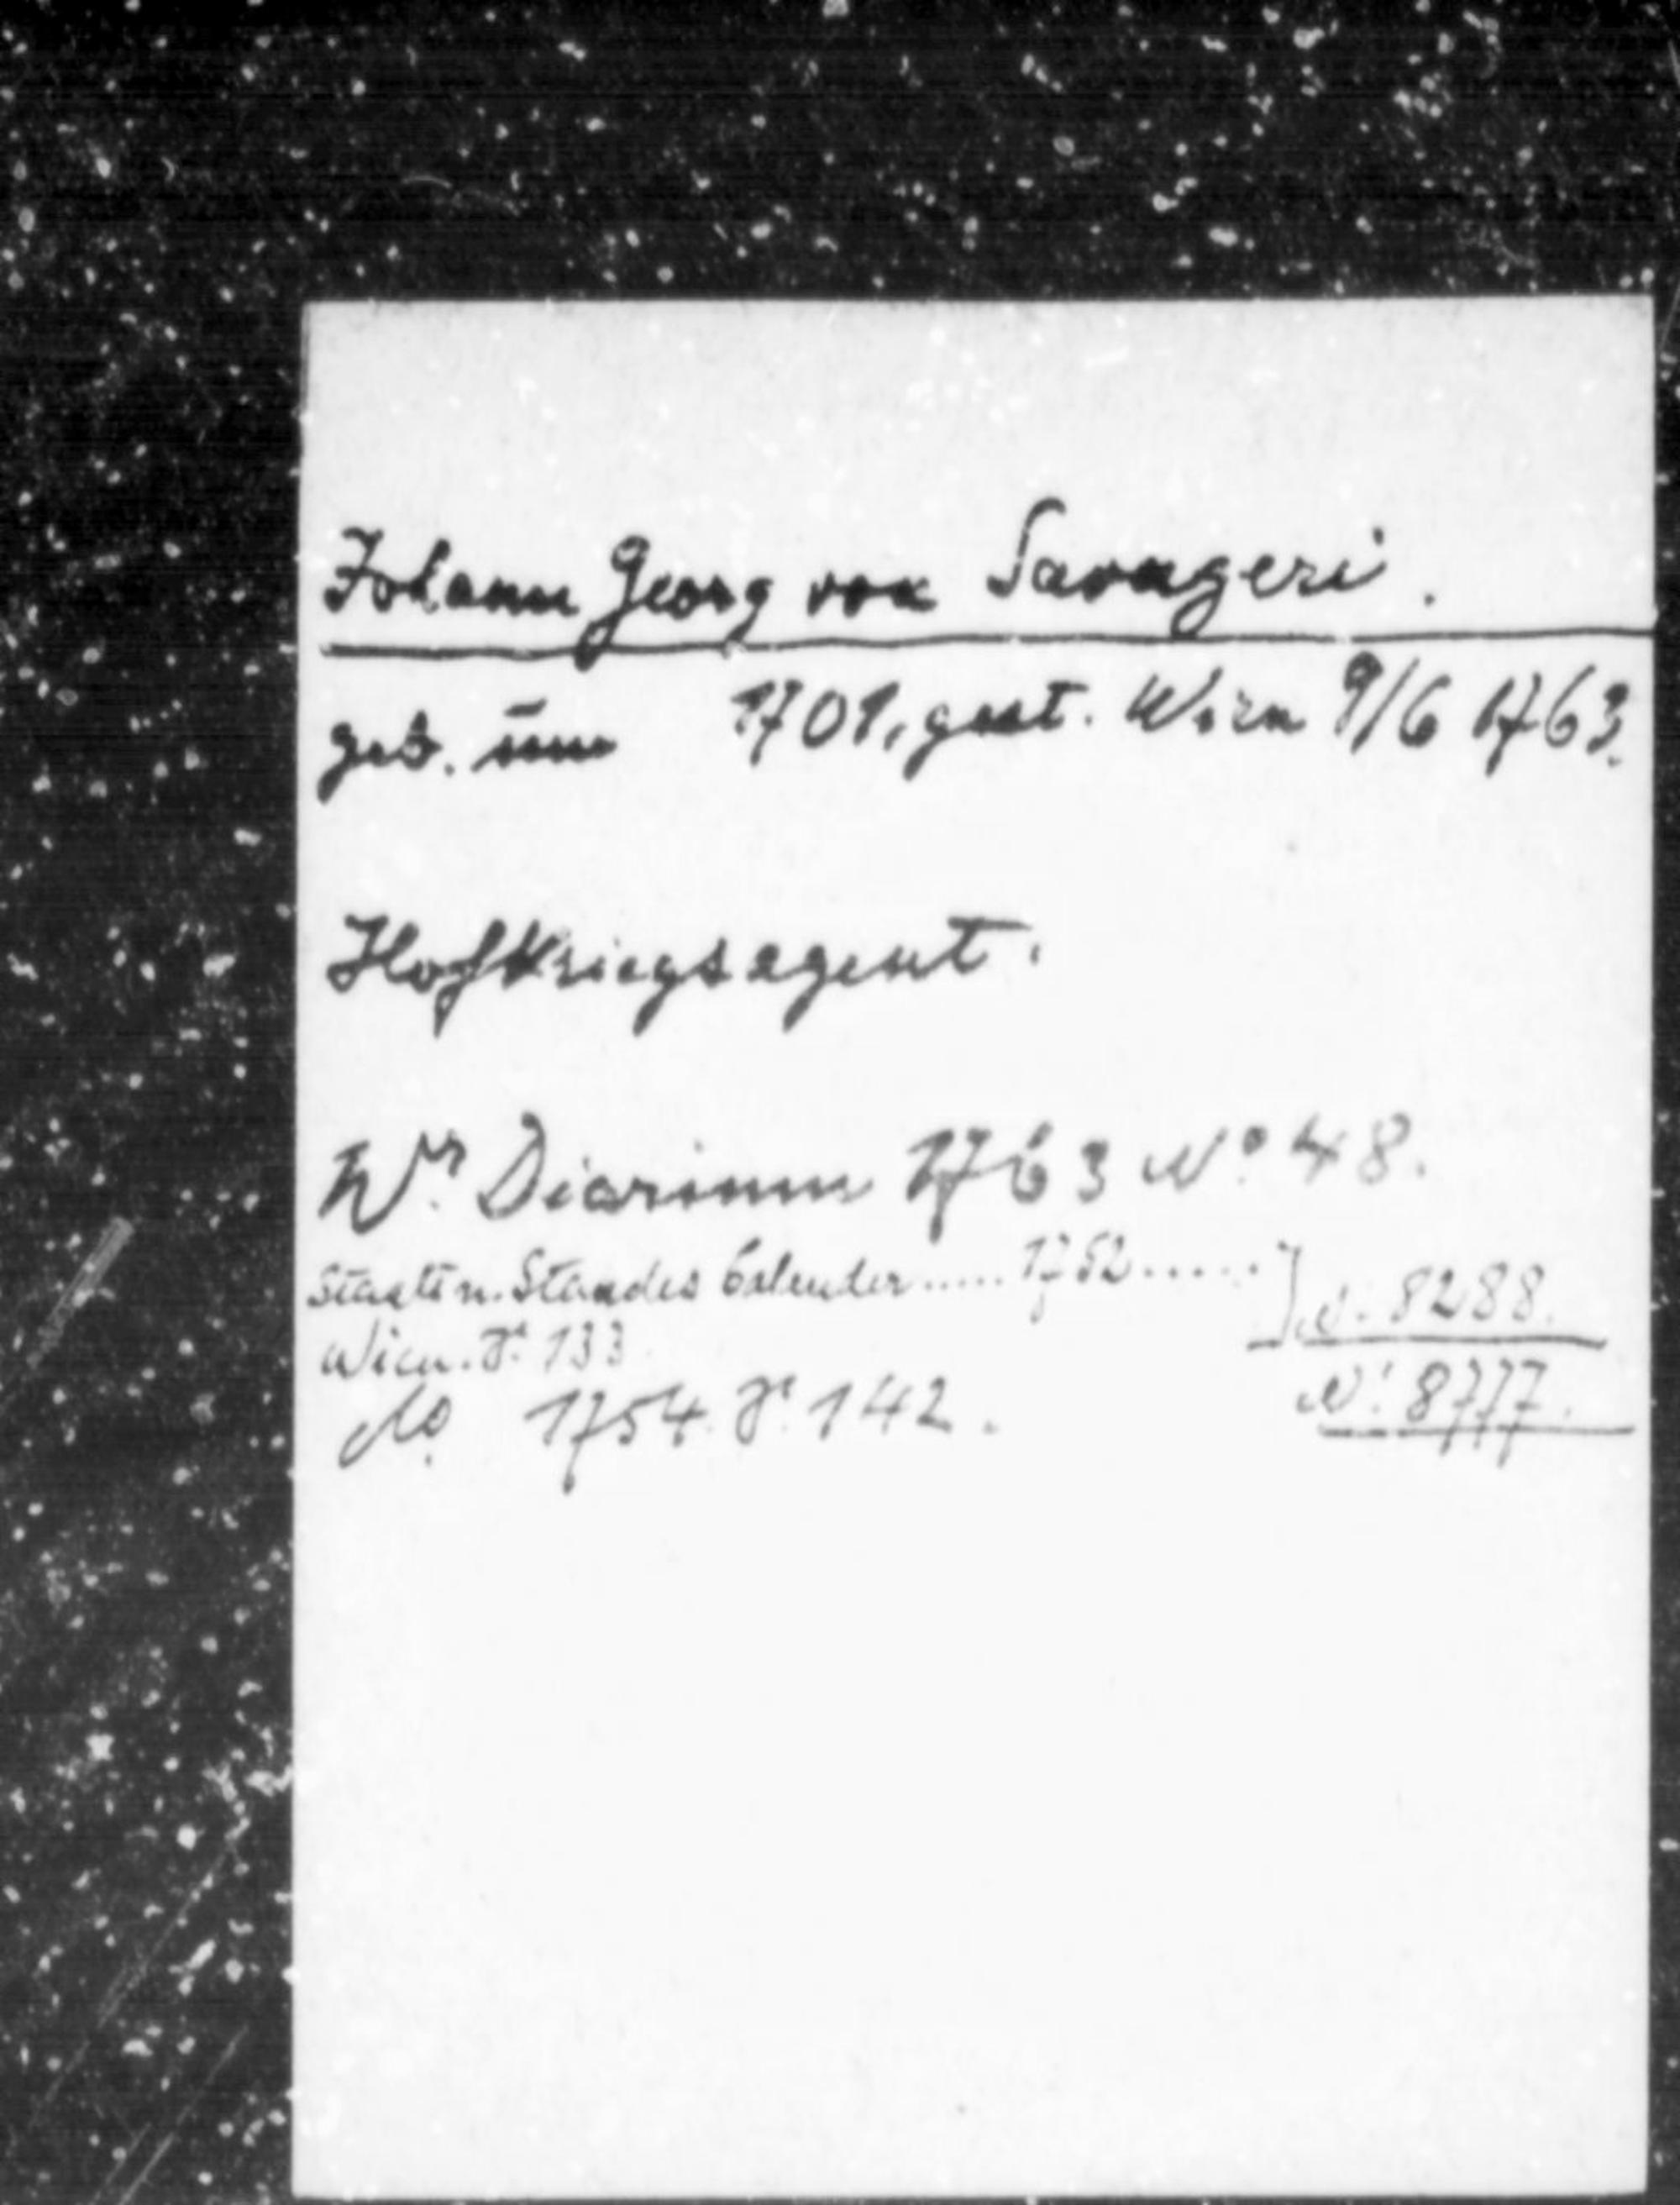 Johann Georg von Savageri.
geb. um 1701, gest. Wien 9/6 1763.
Hofkriegsagent.
Wr. Diarium 1763 No 48.
Staats u. Standes Calender ..... 1752 ..... N. 8288.
Wien. S. 133
No 1754. S. 142. N. 8777.